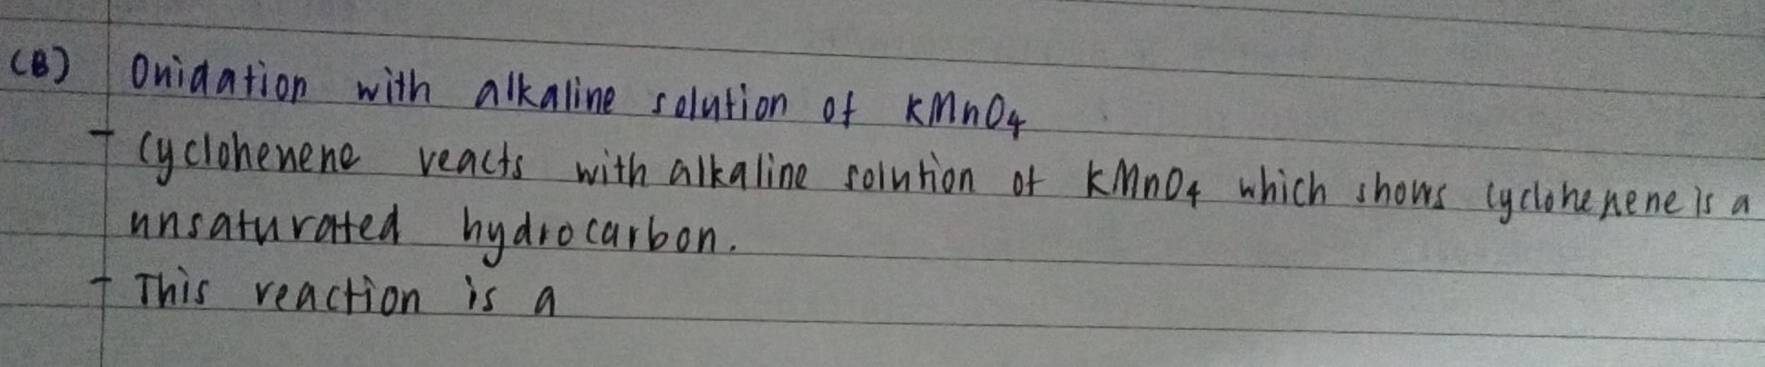 (B) Oxidation with alkaline solution of KMnO4
- Cyclohexene reacts with alkaline solution of KMnO4 which shows cyclohexene is a
unsaturated hydrocarbon.
- This reaction is a